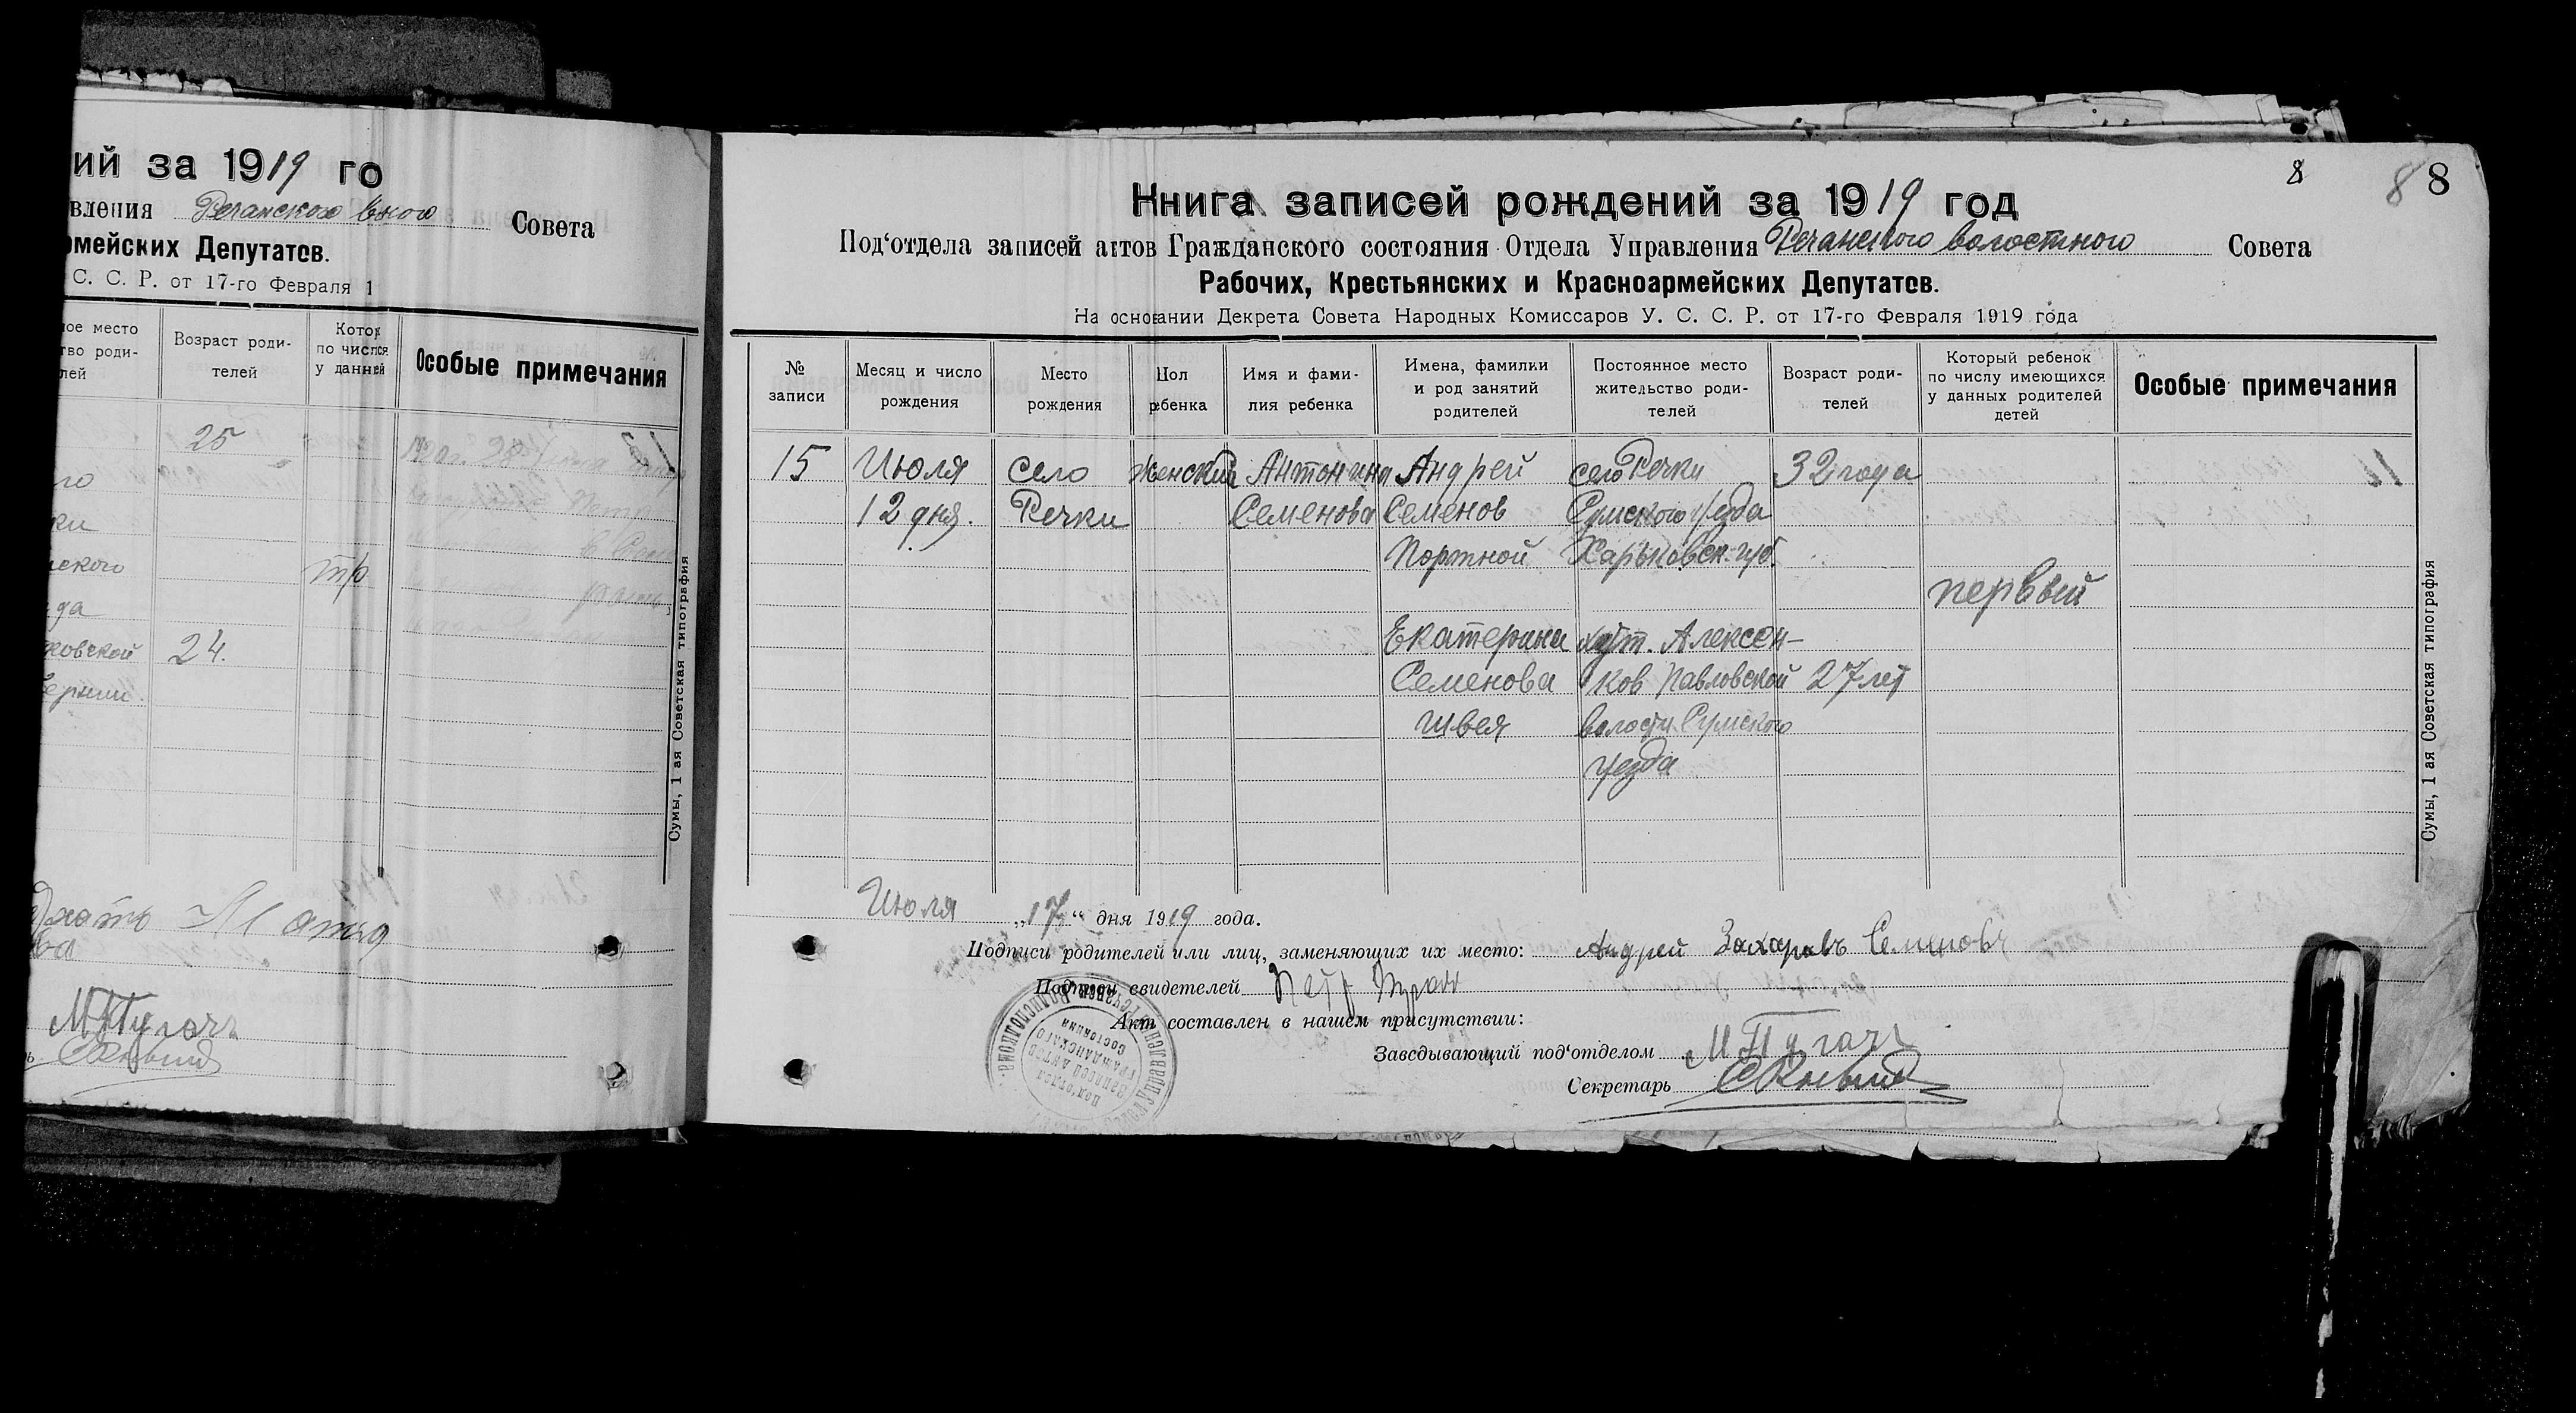 ий за 1919 го
вления Речанского Совета
рмейских Депутатов.
С. С. Р. от 17-го Февраля 1
ное место
тво роди-
лей
Возраст роди-
телей
Котор
по числя
у данней
Особые примечания
25
го
ки
ского
да
24.
ковской
М Пугачъ
Сумы, 1 ая Советская типография
8 8 8
Книга записей рождений за 1919 год
Под‘отдела записей актов Гражданского состояния Отдела Управления Речанского волостного Совета
Рабочих, Крестьянских и Красноармейских Депутатов.
На основании Декрета Совета Народных Комиссаров У. С. С. Р. от 17-го Февраля 1919 года
№
записи
Месяц и число
рождения
Место
рождения
Пол
ребенка
Имя и фами-
лия ребенка
Имена, фамилии
и род занятий
родителей
Постоянное место
жительство роди-
телей
Возраст роди-
телей
Который ребенок
по числу имеющихся
у данных родителей
детей
Особые примечания
15 Июля село женский Антонина Андрей село Речки 32 года
12 дня. Речки Семенова Семенов Сумского уезда
Портной Харьковск. губ.
первый
Екатерина хут. Алексен-
Семенова ков Павловской 27 лет
швея волости Сумского
уезда
Июля „17“ дня 1919 года.
Подписи родителей или лиц, заменяющих их место: Андрей Захаровъ Семеновъ
Подписи свидетелей Петр
Акт составлен в нашем присутствии:
Заведывающий под‘отделом М Пугачъ
Секретарь
Под'отдел
записей актов
гражданского
состояния
Сумы, 1 ая Советская типография